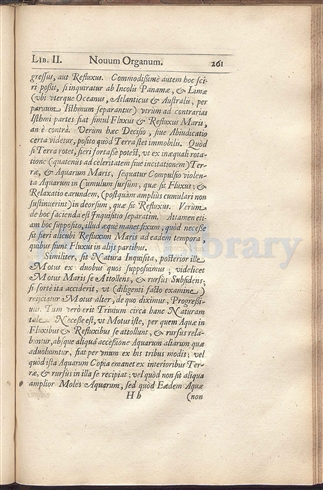 LIB. II. Novum Organum. 261
gressus, aut Refluxus. Commodissimè autem hoc sci-
ri possit, si inquiratur ab Incolis Panamæ, & Limæ
(vbi uterque Oceanus, Atlanticus & Australis, per
parvum Isthmum separantur) utrùm ad contrarias
Isthmi partes fiat simul Fluxus & Refluxus Maris,
an è contrà. Verùm hæc Decisio, sive Abiudicatio
certa videtur, posito quòd Terra stet immobilis. Quòd
si Terra rotet, fieri fortassè potest, ut ex inæquali rota-
tione (quatenus ad celeritatem sive incitationem) Ter-
ræ, & Aquarum Maris, sequatur Compulsio violen-
ta Aquarum in Cumulum sursùm, quæ sit Fluxus; &
Relaxatio earundem, (postquàm ampliùs cumulari non
sustinuerint) in deorsùm, quæ sit Refluxus. Verùm
de hoc facienda est Inquisitio separatim. Attamen eti-
am hoc supposito, illud æquè manet fixum; quòd necesse
sit fieri alicubi Refluxum Maris ad eadem tempora,
quibus fiunt Fluxus in aliis partibus.
Similiter, sit Natura Inquisita, posterior ille
Motus ex duobus quos supposuimus, videlicet
Motus Maris se Attollens, & rursus Subsidens;
si fortè ita acciderit, ut (diligenti facto examine)
reijciatur Motus alter, de quo diximus, Progressi-
vus. Tum verò erit Trivium circa hanc Naturam
tale. Necesse est, ut Motus iste, per quem Aquæ in
Fluxibus & Refluxibus se attollunt, & rursus rela-
buntur, absque aliquâ accessione Aquarum aliarum quæ
advoluuntur, fiat per unum ex his tribus modis; vel
quòd ista Aquarum Copia emanet ex interioribus Ter-
ræ, & rursùs in illa se recipiat; vel quòd non sit aliqua
amplior Moles Aquarum, sed quòd Eædem Aquæ
Hh (non